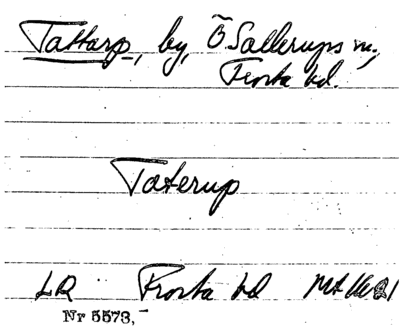 Tattarp, by, Ö Sallerups sn,
Frosta hd.
Taterup
LR Frosta hd
Nr 5573,-